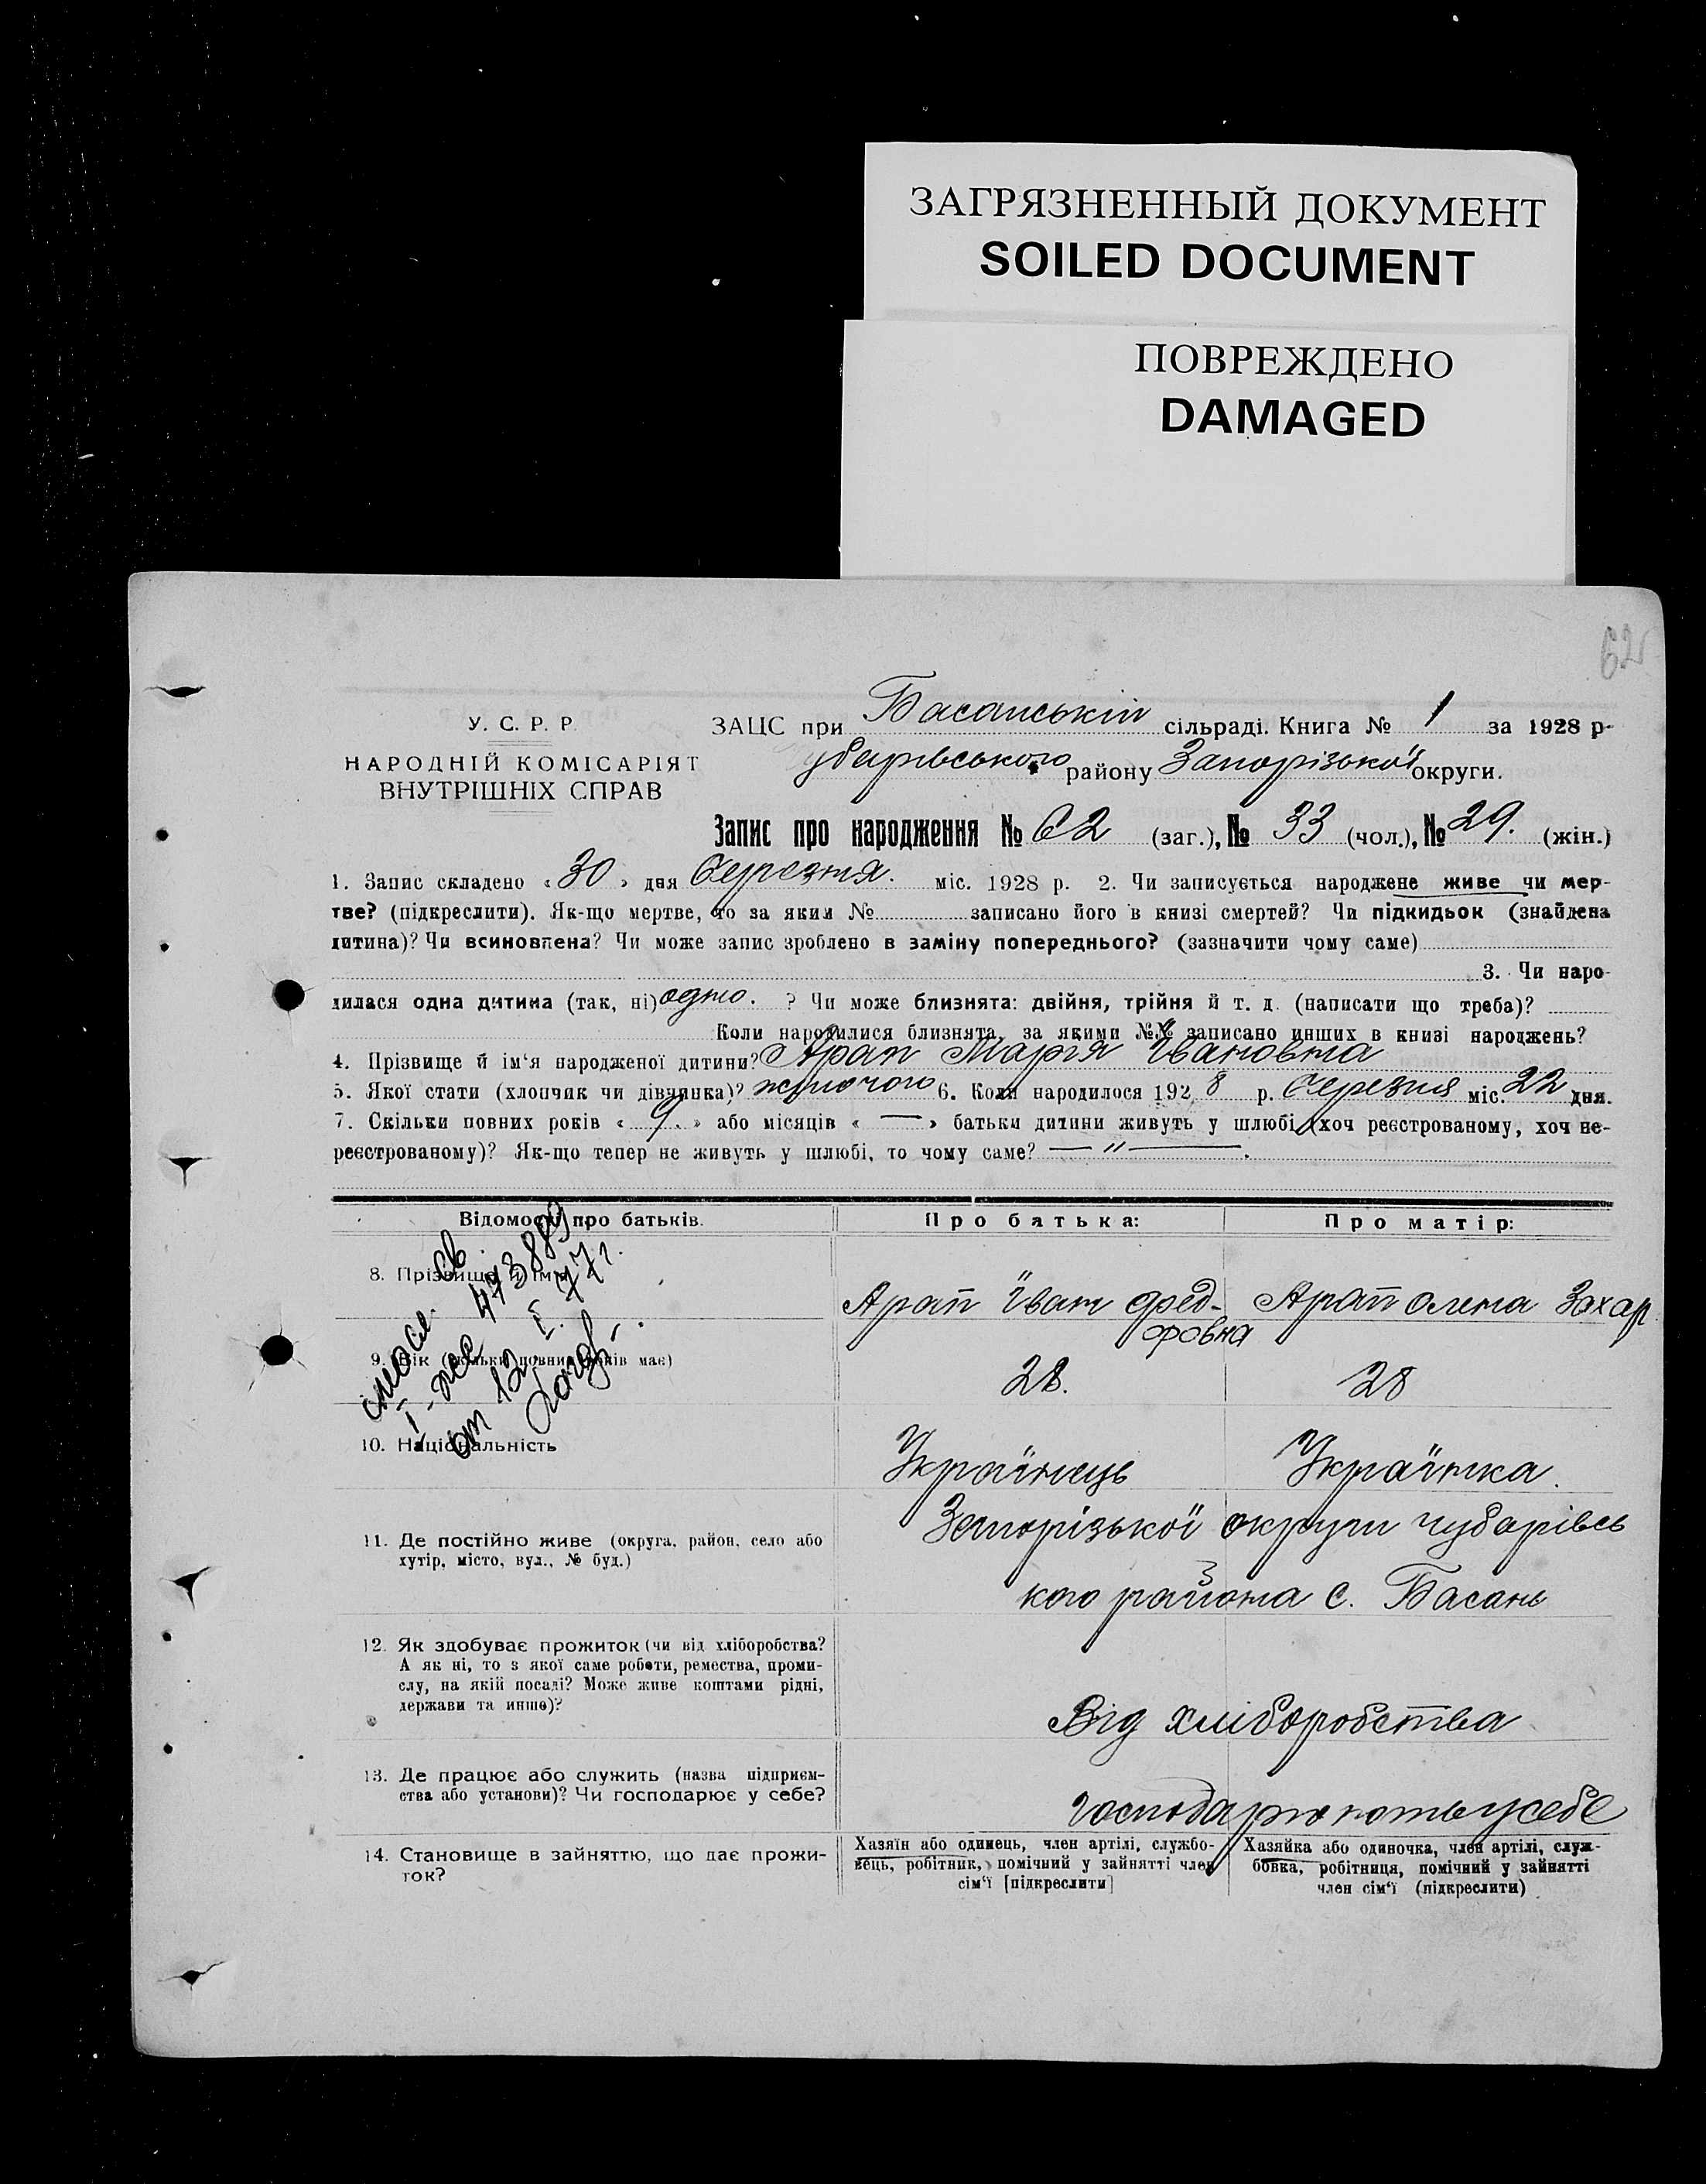 ЗАГРЯЗНЕННЫЙ ДОКУМЕНТ
SOILED DOCUMENT
ПОВРЕЖДЕНО
DAMAGED
62
У. С. Р. Р.
НАРОДНІЙ КОМІСАРІЯТ
ВНУТРІШНІХ СПРАВ
ЗАЦС при Басанській сільраді. Книга № 1 за 1928 р-
убарівського району Запорізької округи.
Запис про народження № 62 (заг.), № 33 (чол.), № 29. (жін.)
1. Запис складено « 30 » дня березня. міс. 1928 р. 2. Чи записується народжене живе чи мер-
тве? (підкреслити). Як-що мертве, то за яким № записано його в книзі смертей? Чи підкидьок (знайдена
дитина)? Чи всиновлена? Чи може запис зроблено в заміну попереднього? (зазначити чому саме)
3. Чи наро-
дилася одна дитина (так, ні) одно. ? Чи може близнята: двійня, трійня й т. д. (написати що треба)?
Коли народилися близнята, за якими №№ записано инших в книзі народжень?
4. Прізвище й ім'я народженої дитини? Арап Марія Івановна
5. Якої стати (хлопчик чи дівчинка)? жіночого 6. Коли народилося 192 8 р. березня міс. 22 дня.
7. Скільки повних років « 9. » або місяців « — » батьки дитини живуть у шлюбі (хоч реєстрованому, хоч не-
реєстрованому)? Як-що тепер не живуть у шлюбі, то чому саме? — " —.
Відомости про батьків. Про батька: Про матір:
8. Прізвище й ім'я Арап Їван Фед- Арап Олена Захар
ровна
9. Вік (скільки повних років має) 28. 28
10. Національність Українець Українка.
11. Де постійно живе (округа, район, село або
хутір, місто, вул., № буд.)
Запорізької округи чубарівсь
кого района с. Басань
12. Як здобуває прожиток (чи від хліборобства?
А як ні, то з якої саме роботи, ремества, проми-
слу, на якій посаді? Може живе коштами рідні,
держави та инше)?
Від хліборобства
13. Де працює або служить (назва підприєм-
ства або установи)? Чи господарює у себе?
господарюють у себе
14. Становище в зайняттю, що дає прожи-
ток?
Хазяїн або одинець, член артілі, службо-
вець, робітник, помічний у зайнятті член
сім'ї [підкреслити]
Хазяйка або одиночка, член артілі, служ-
бовка, робітниця, помічний у зайнятті
член сім'ї (підкреслити)
св.
473889
от 12. I. 77 г.